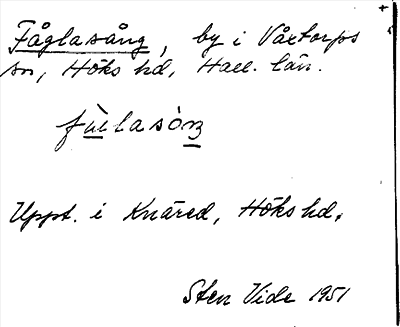 Fåglasång, by i Våxtorps
sn, Höks hd, Hall. län.
fùlasón
Uppt. i Knäred, Höks hd.
Sten Vide 1951